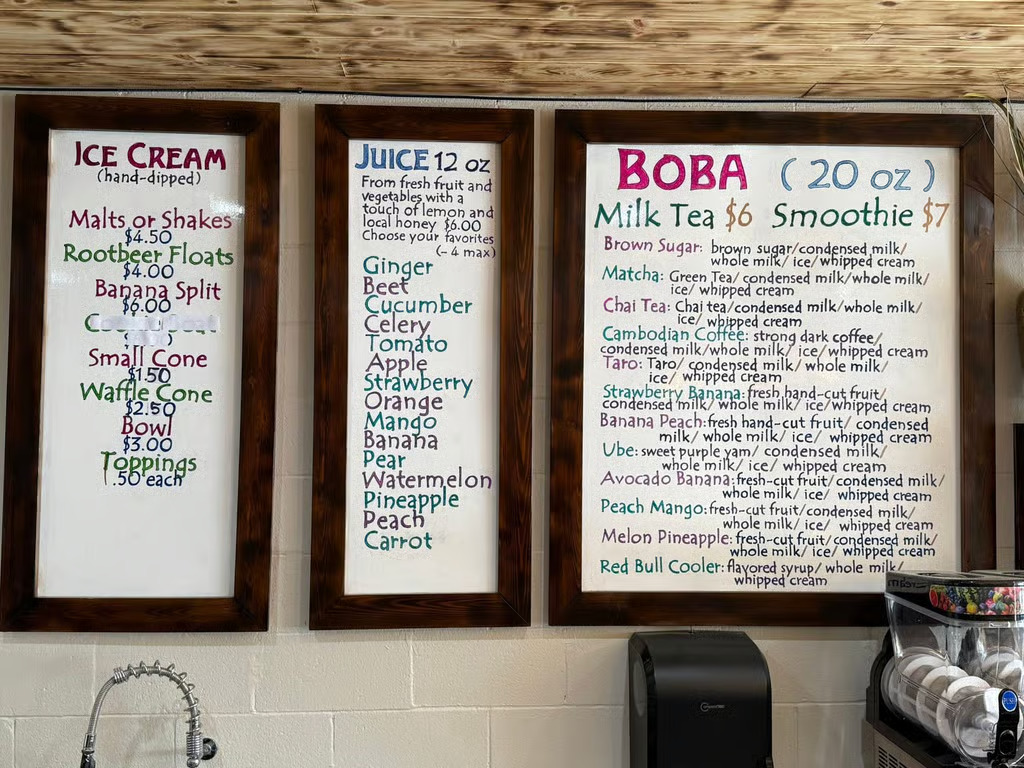 ICE CREAM
(hand-dipped)
Malts or Shakes
$4.50
Rootbeer Floats
$4.00
Banana Split
Small Cone
$1.50
Waffle Cone
$2.50
Bowl
$3.00
Toppings
.50 each
JUICE 12 oz
From fresh fruit and
vegetables with a
touch of lemon and
local honey $6.00
Choose your favorites
(- 4 max)
Ginger
Beet
Cucumber
Celery
Tomato
Apple
Strawberry
Orange
Mango
Banana
Pear
Watermelon
Pineapple
Peach
Carrot
BOBA (20 oz)
Milk Tea $6 Smoothie $7
Brown Sugar: brown sugar/condensed milk/
whole milk/ ice/ whipped cream
Matcha: Green Tea/ condensed milk/whole milk/
ice/ whipped cream
Chai Tea: Chai tea/condensed milk/whole milk/
ice/ whipped cream
Cambodian Coffee: strong dark coffee/
condensed milk/whole milk/ ice/ whipped cream
Taro: Taro/ condensed milk/ whole milk/
ice/ whipped cream
Strawberry Banana: fresh hand-cut fruit/
condensed milk/ whole milk/ ice/ whipped cream
Banana Peach: fresh hand-cut fruit/ condensed
milk/ whole milk/ ice/ whipped cream
Ube: sweet purple yam/ condensed milk/
whole milk/ ice/ whipped cream
Avocado Banana: fresh-cut fruit/condensed milk/
whole milk/ ice/ whipped cream
Peach Mango: fresh-cut fruit/condensed milk/
whole milk/ ice/ whipped cream
Melon Pineapple: fresh-cut fruit/ condensed milk/
whole milk/ ice/ whipped cream
Red Bull Cooler: flavored syrup/ whole milk/
whipped cream